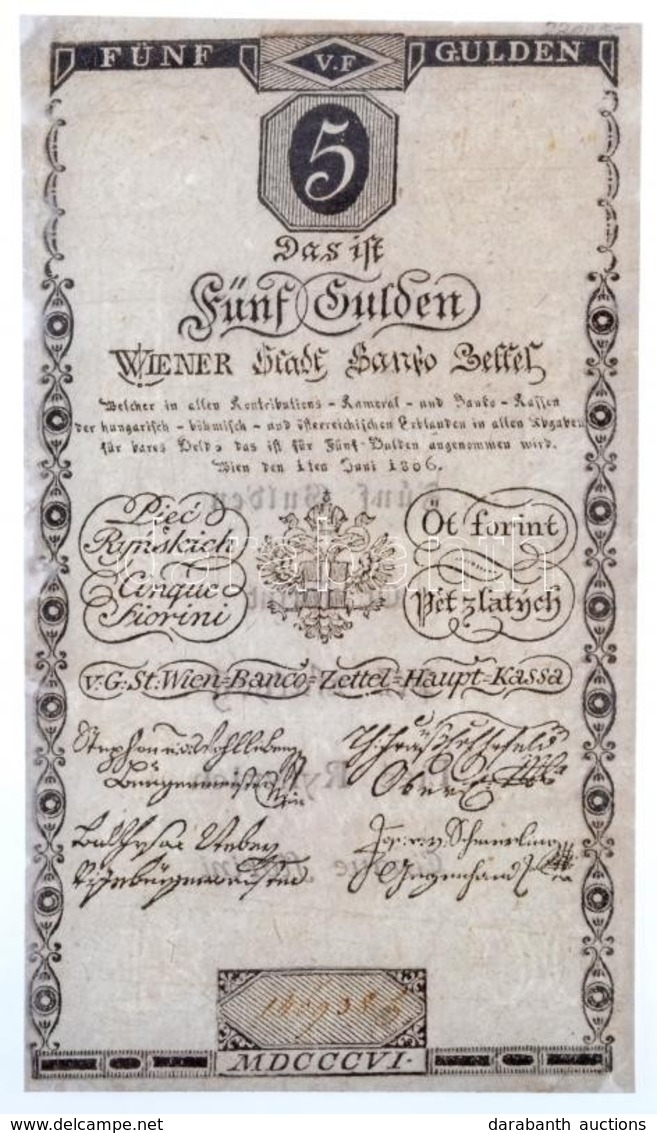 FÜNF V.F GULDEN
5
Das ist
Fünf Gulden
WIENER Stadt Banko Zettel
Welcher in allen Kontributions - Kameral - und Banko - Kassen
der hungarisch - böhmisch - und österreichischen Erblanden in allen Abgaben
für bares Geld, das ist für Fünf-Gulden angenommen wird.
Wien den 1ten Juni 1806.
Pięć
Ryńskich
Öt forint
Cinque
Fiorini
Pět zlatých
v: G: St: Wien=Banco=Zettel=Haupt=Kassa
MDCCCVI.
www.delcampe.net
darabanth auctions